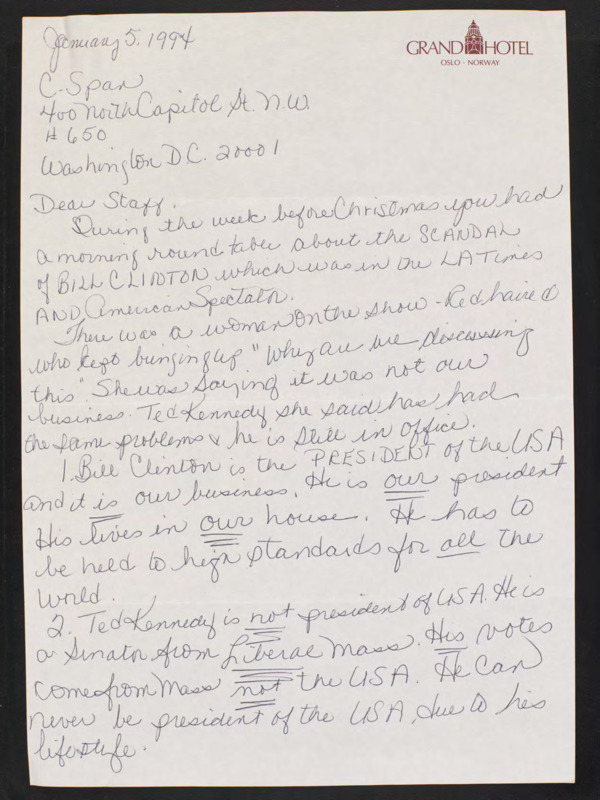 January 5, 1994
GRAND HOTEL
OSLO · NORWAY
C-Span
400 North Capitol St. N.W.
# 650
Washington D.C. 20001
Dear Staff,
During the week before Christmas you had
a morning round table about the SCANDAL
of BILL CLINTON which was in the LA Times
AND American Spectator.
There was a woman on the show - Red haired
who kept bringing up "why are we discussing
this". She was saying it was not our
business. Ted Kennedy she said has had
the same problems & he is still in office.
1. Bill Clinton is the PRESIDENT of the USA
and it is our business. He is our president
His lives in our house. He has to
be held to high standards for all the
world.
2. Ted Kennedy is not president of USA. He is
a Senator from Liberal Mass. His votes
come from Mass not the USA. He can
never be president of the USA, due to his
lifestyle.